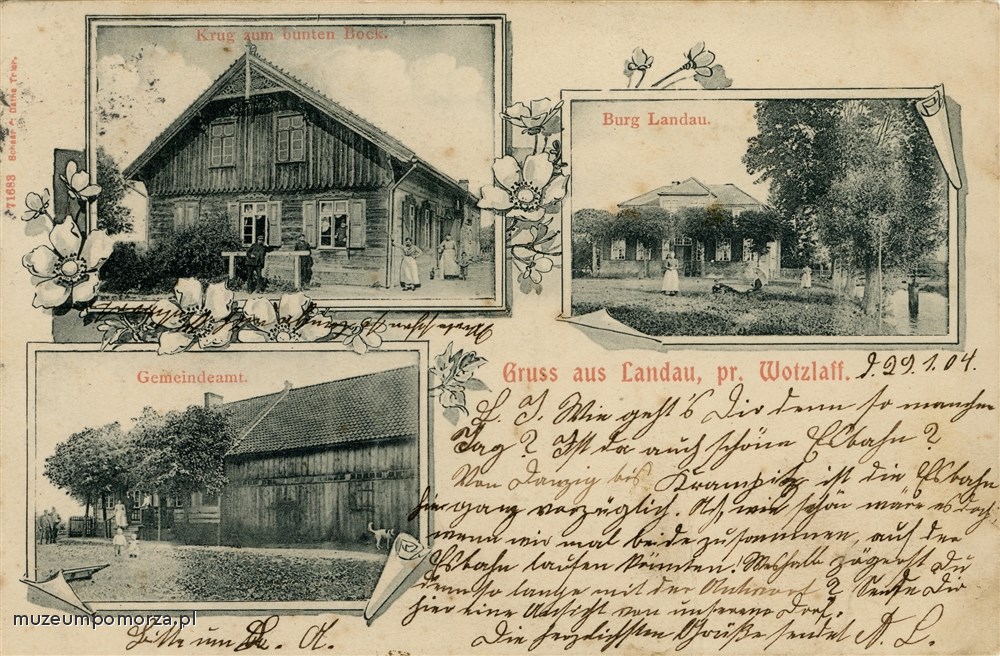 Krug zum bunten Bock.
771683 Schaar & Dathe Trier.
Burg Landau.
Gemeindeamt.
Gruss aus Landau, pr. Wotzlaff. d. 29.1.04.
L. J. Wie geht's Dir denn so manchen
Tag? Ist da auch schöne Eisbahn?
Von Danzig bis Krampitz ist die Eisbahn
hier ganz vorzüglich. Ach, wie schön wäre es doch
wenn wir mal beide zusammen, auf der
Eisbahn laufen könnten! Weshalb zögerst Du
denn so lange mit der Antwort? Sende Dir
hier eine Ansicht von unserem Dorf.
Die herzlichsten Grüße sendet A. L.
Bitte um
muzeumpomorza.pl